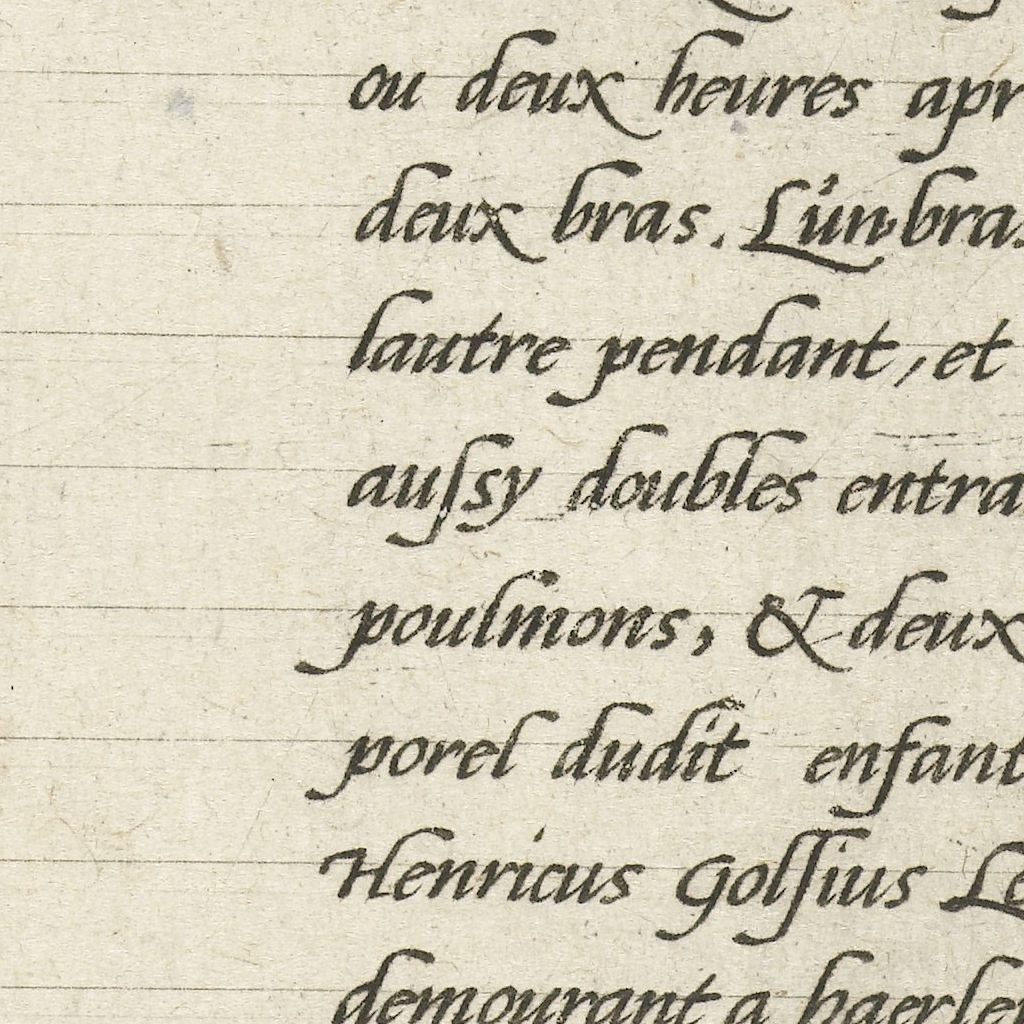 ou deux heures apr
deux bras. L'un bras
lautre pendant, et
auſsy doubles entra
poulmons, & deux
porel dudit enfant
Henricus Golſius Le
demourant a haerle